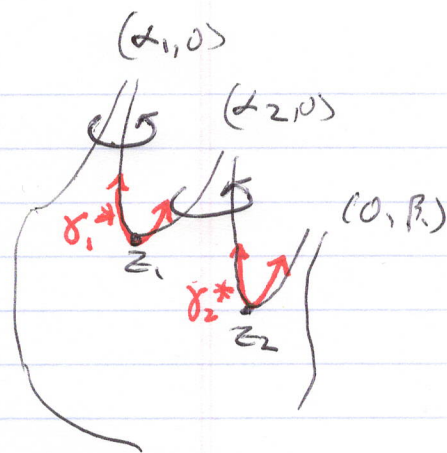 (α₁,0)
(α₂,0)
(0,β₁)
γ₁*
z₁
γ₂*
z₂